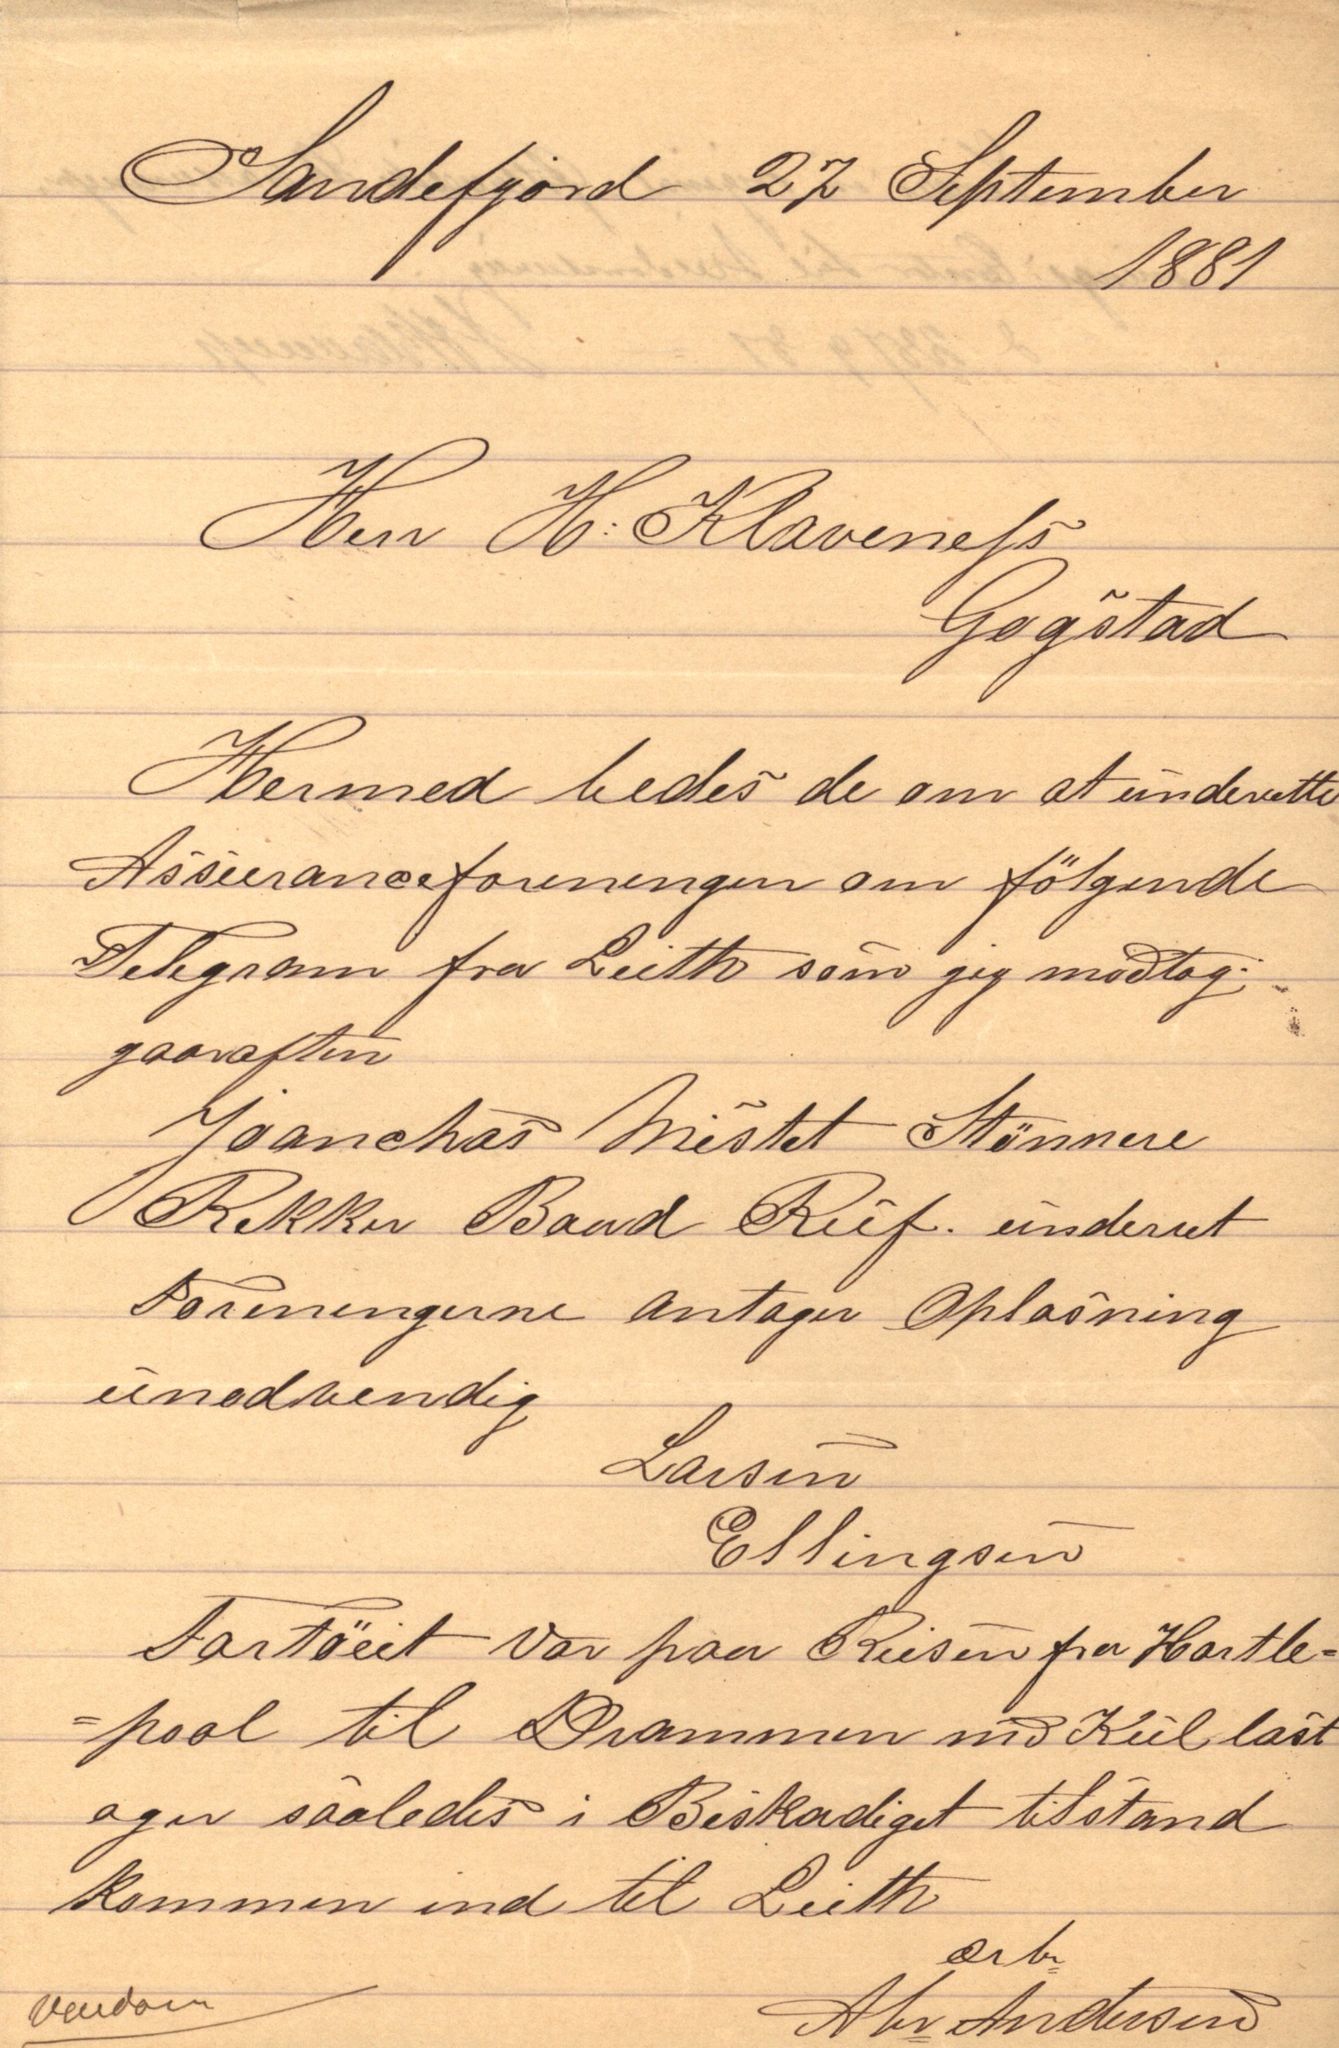 Sandefjord 27 September
1881
Herr H: Klaveness
Gogstad
Hermed bedes de om at underrette
Assuranceforeningen om følgende
Telegram fra Leith som jeg modtog
gaaraften
Joanchas Mistet Stönnere
Rekker Baad Ruf. underret
Foreningerne antager Oplosning
unodvendig
Larsen
Ellingsen
Fartöeit var paa Reisen fra Hartle=
=pool til Drammen md Kul last
oger saaledes i Beskadiget tilstand
kommen ind til Leith
ærb
Abr Andersen
Vendom